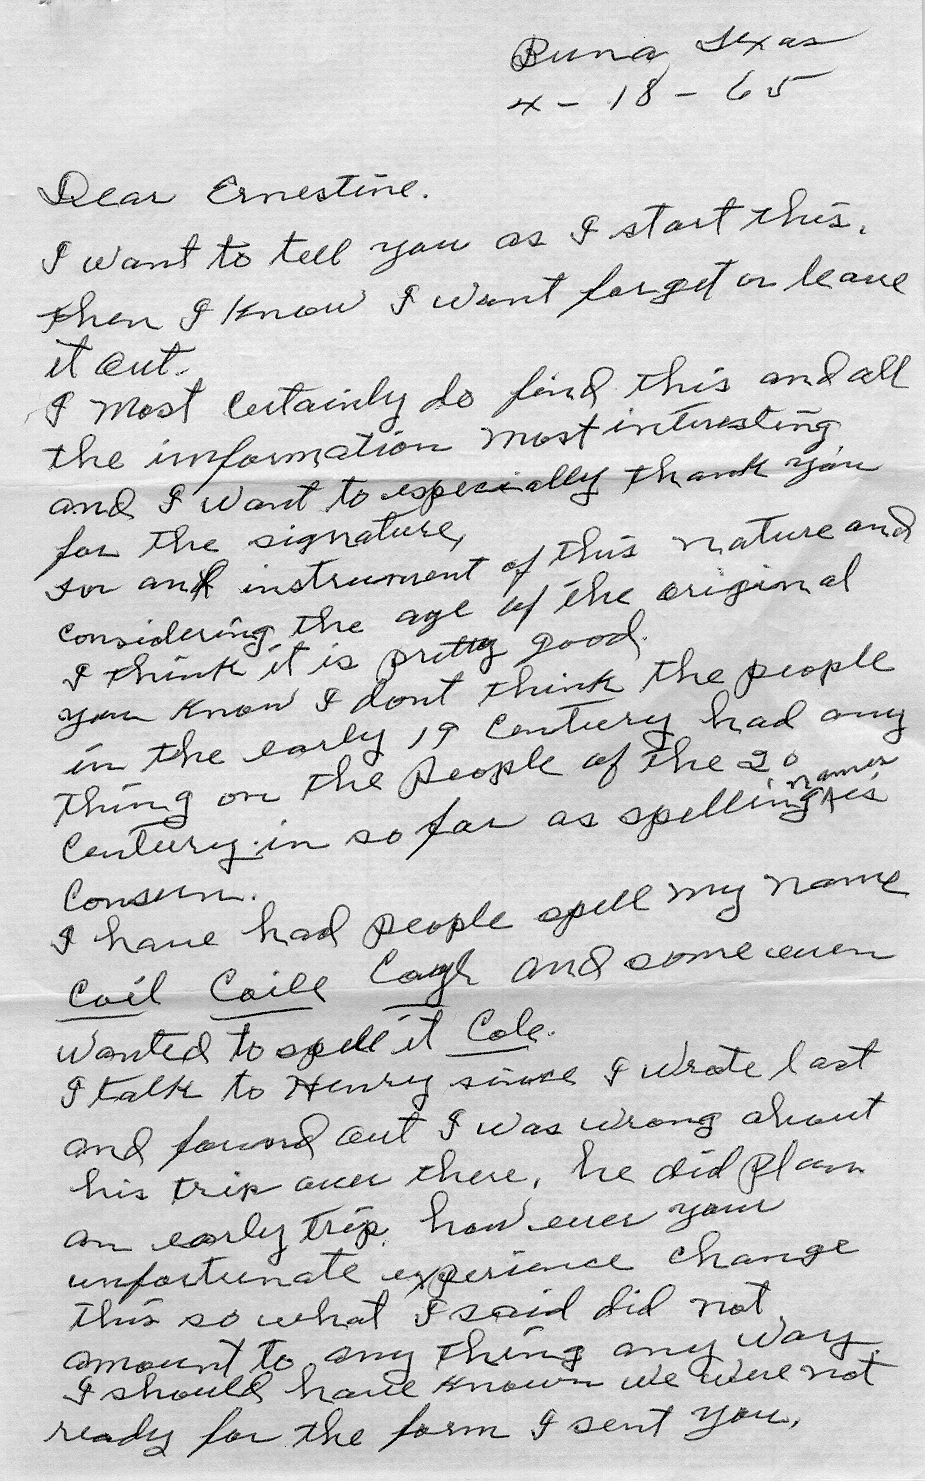 Buna, Texas
4-18-65
Dear Ernestine.
I want to tell you as I start this,
then I know I wont forget or leave
it out.
I most certainly do find this and all
the information most interesting
and I want to especially thank you
for the signature,
for an instrument of this nature and
considering the age of the original
I think it is pretty good.
you know I dont think the people
in the early 19 Century had any
thing on the people of the 20
Century in so far as spelling names is
consern.
I have had people spell my name
Coil Coill Cayl and some even
wanted to spell it Cole.
I talk to Henry since I wrote last
and found out I was wrong about
his trip over there, he did plan
an early trip, however your
unfortunate experience change
this so what I said did not
amount to any thing any way.
I should have known we were not
ready for the form I sent you,